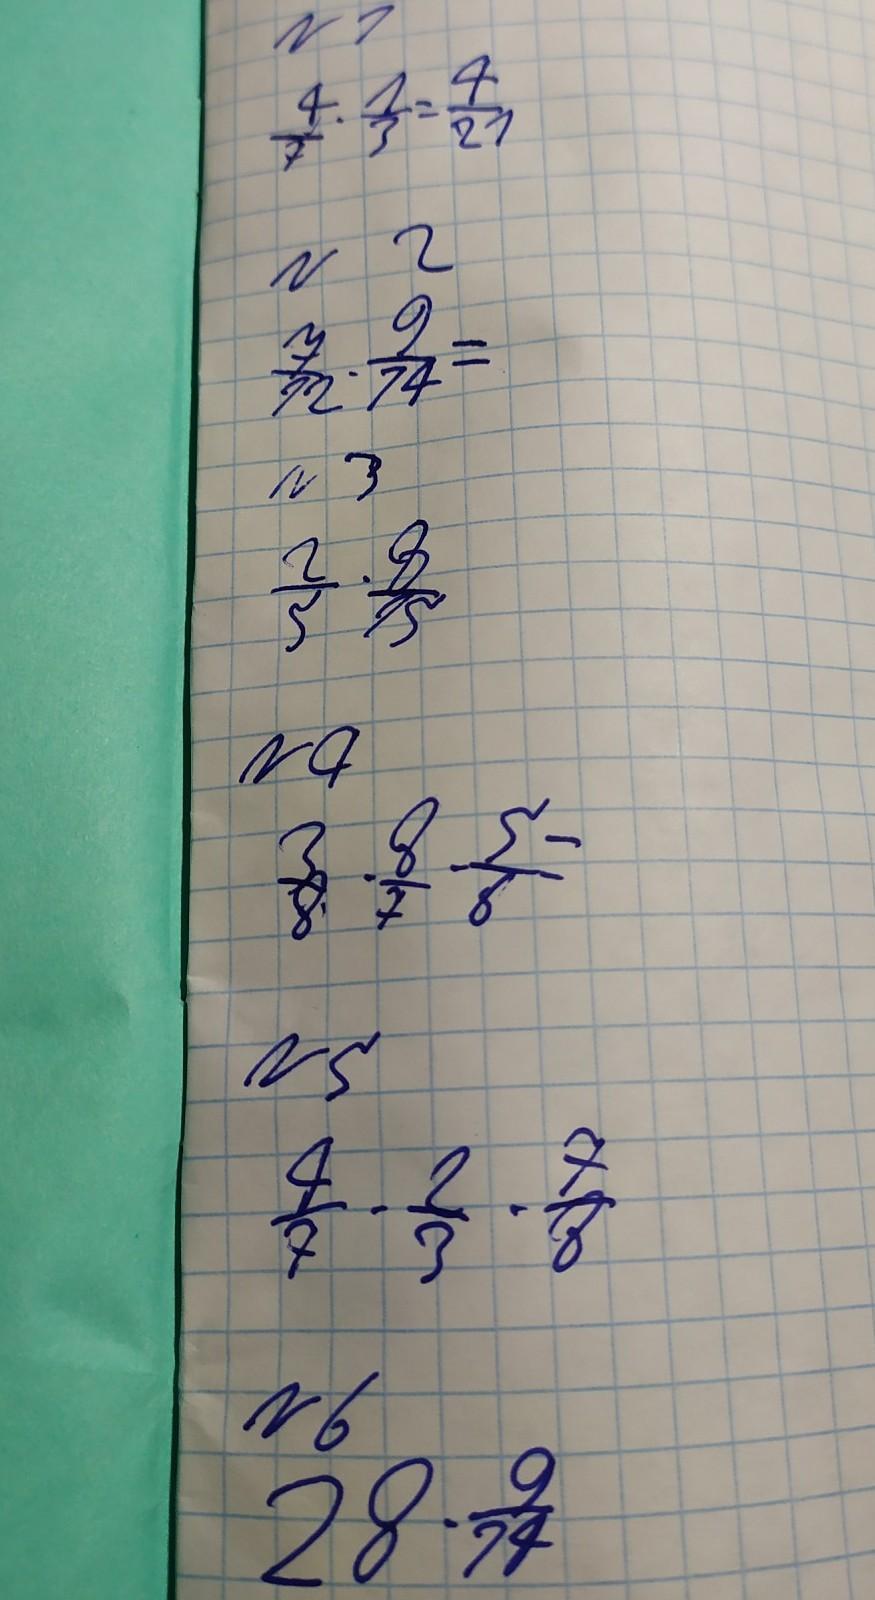 N 1
4/7 · 1/3 = 4/21
N 2
7/12 · 9/14 =
N 3
2/5 · 9/15
N 4
3/8 · 8/7 · 5/6 =
N 5
4/7 · 2/3 · 7/8
N 6
28 · 9/14